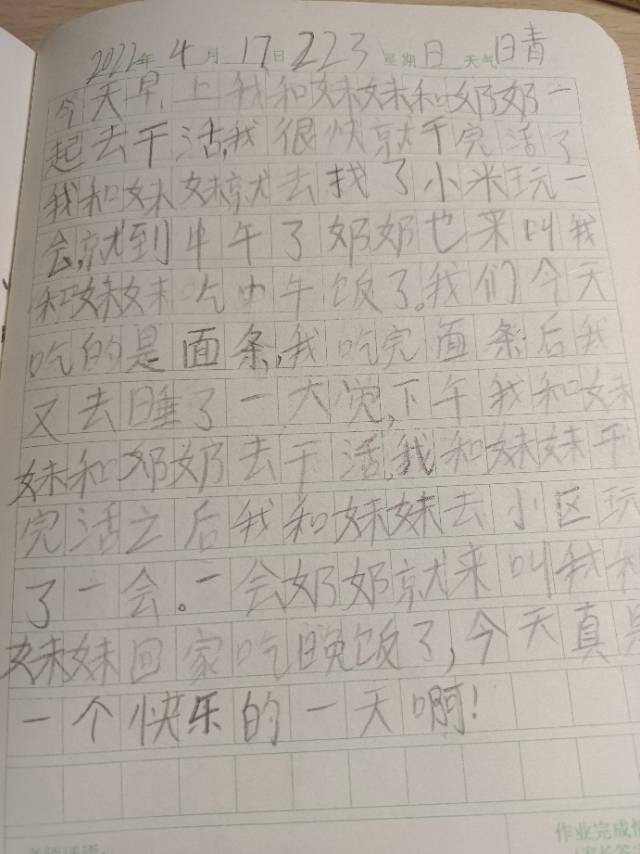 2022年 4月 17日 223 星期日 天气日青
今天早上我和妹妹和奶奶一
起去干活,我很快就干完活了
我和妹妹就去找了小米玩一
会,就到中午了奶奶也来叫我
和妹妹吃中午饭了。我们今天
吃的是面条,我吃完面条后我
又去睡了一大觉,下午我和妹
妹和奶奶去干活,我和妹妹干
完活之后我和妹妹去小区玩
了一会。一会奶奶就来叫我和
妹妹回家吃晚饭了,今天真是
一个快乐的一天啊!
作业完成情